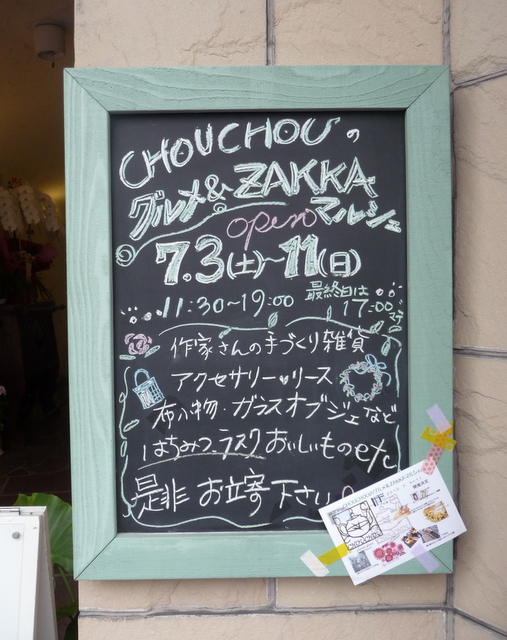 CHOUCHOUの
グルメ& ZAKKA
open マルシェ
7.3(土)~11(日)
11:30~19:00 最終日は17:00マデ
作家さんの手づくり雑貨
アクセサリー・リース
布小物・ガラスオブジェなど
はちみつラスク おいしいものetc
是非 お立寄下さい